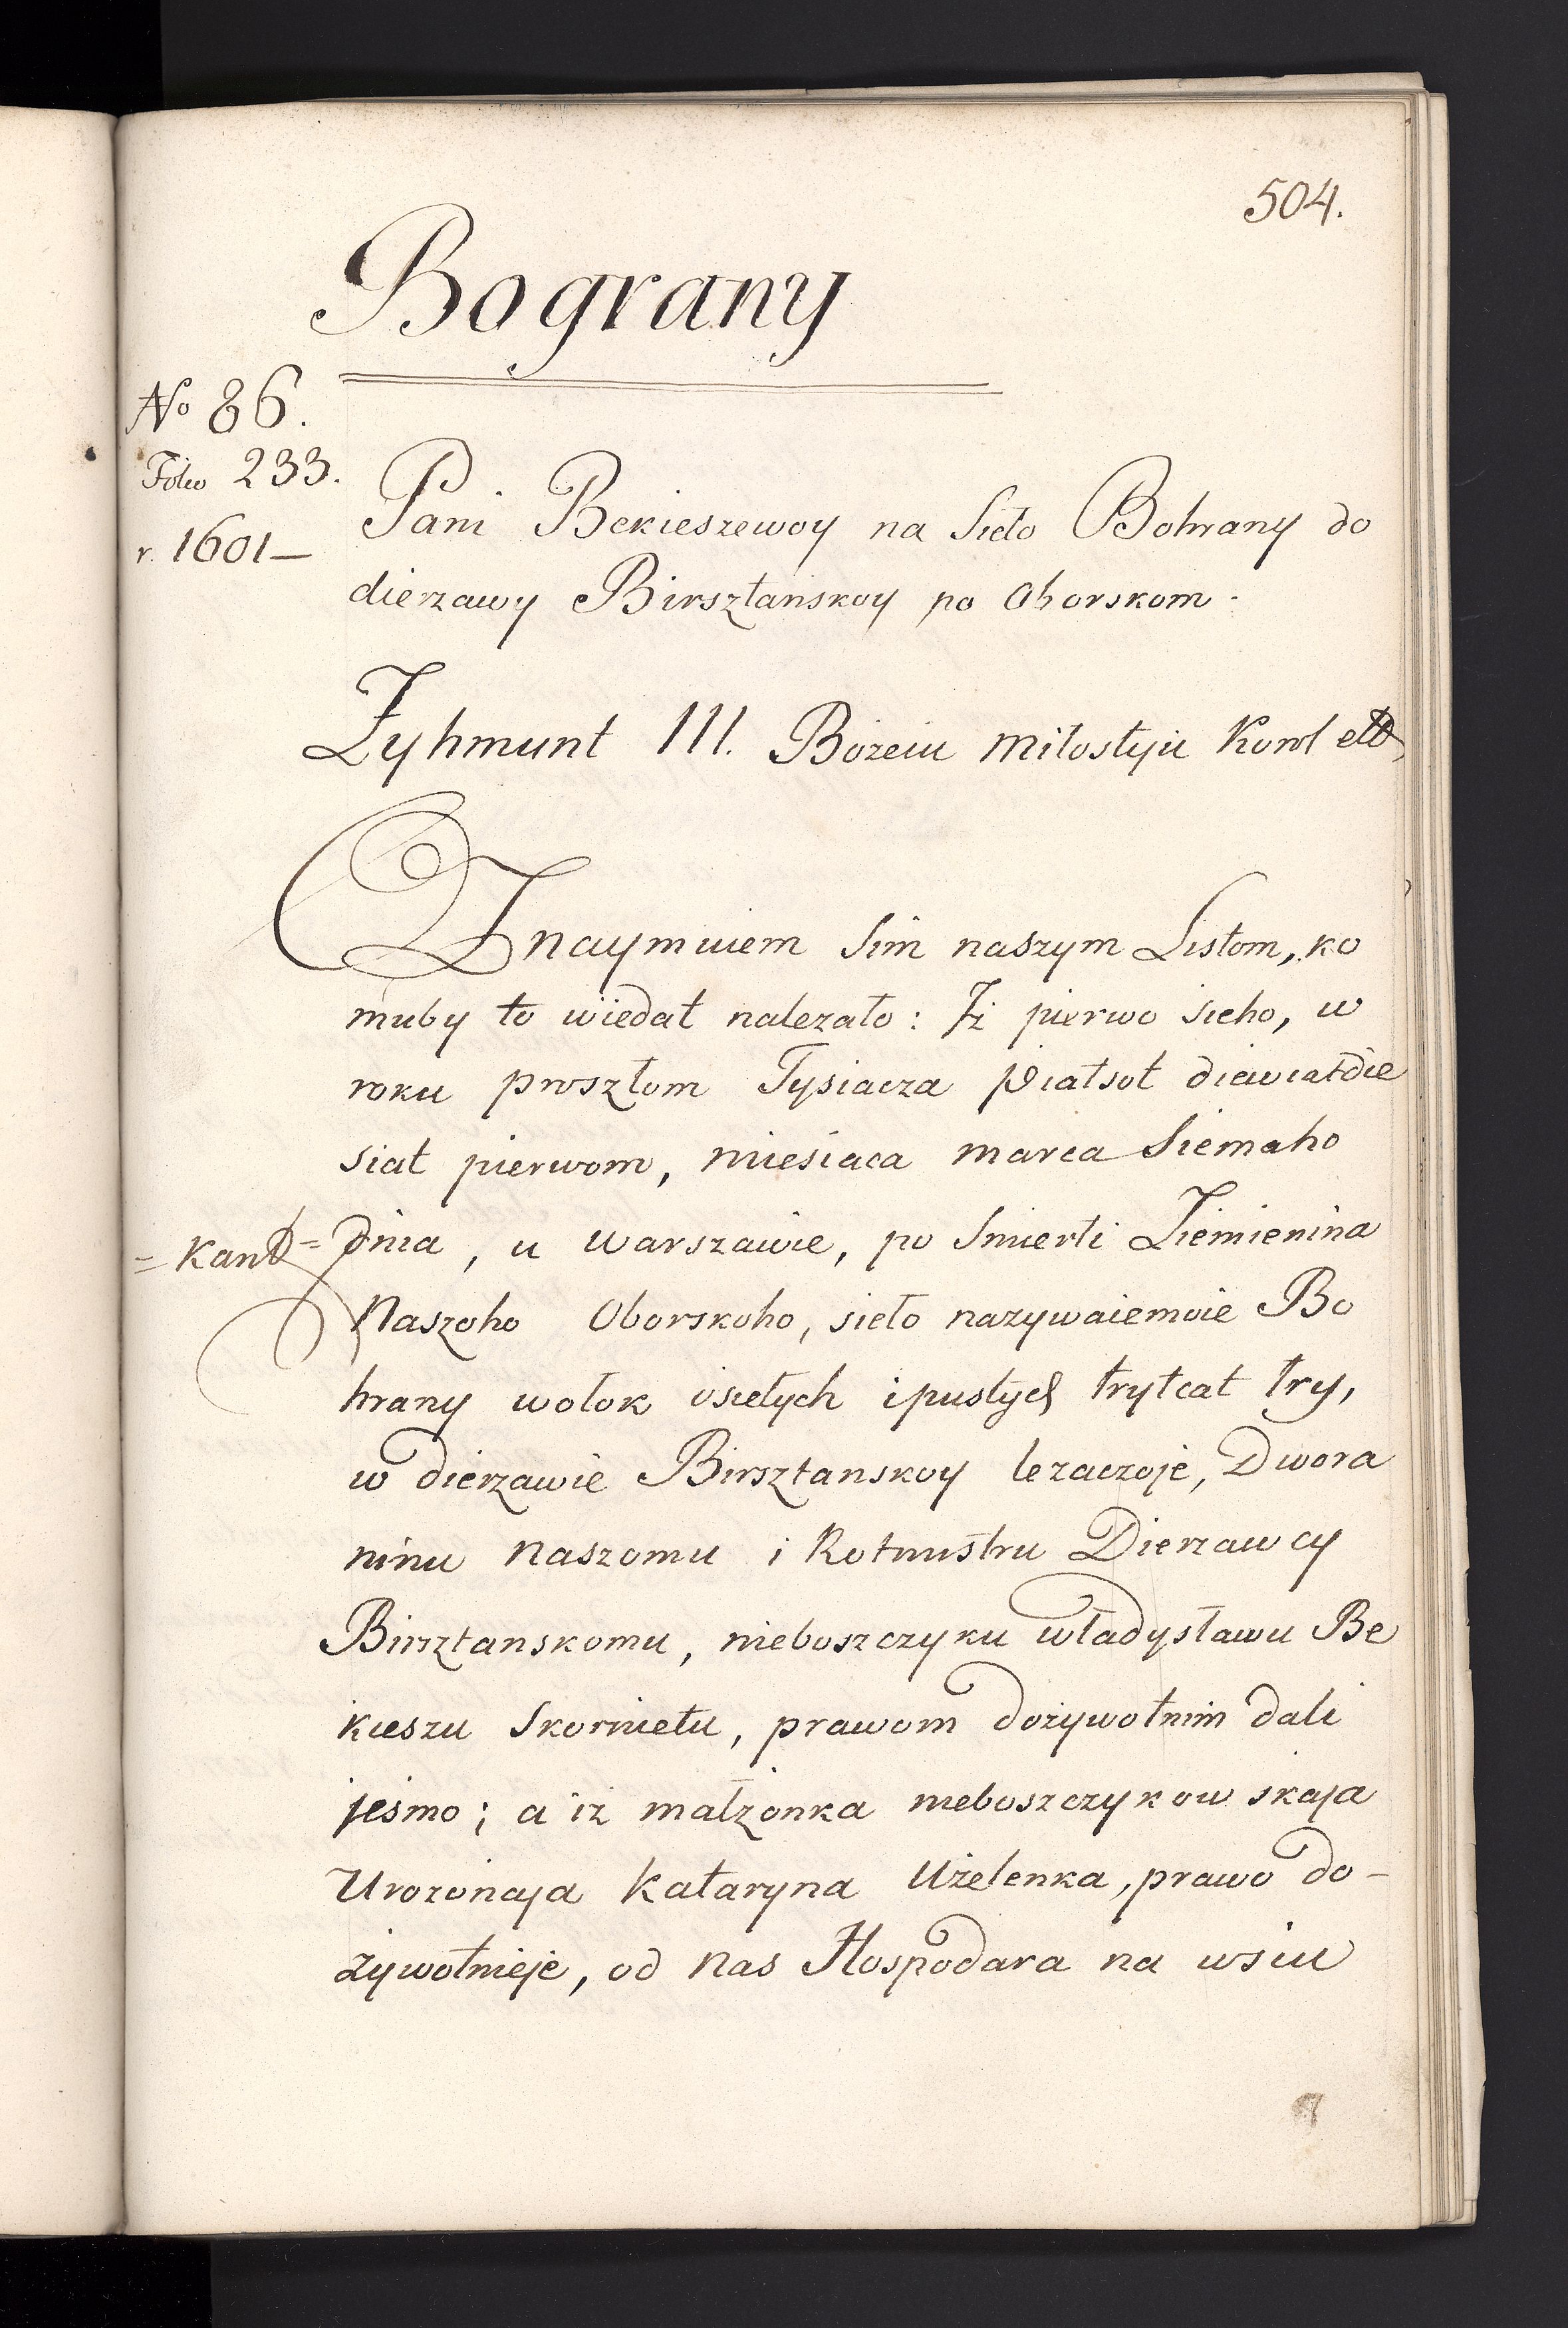 504.
Bograny
No 86.
Folio 233.
r. 1601 —
Pani Bekieszewoy na Sieło Bohrany do
dierzawy Birsztanskoy po Oborskom.
Zyhmunt III. Bożeiu miłostyiu Korol etc
Oznaymuiem Sim naszym Listom, ko
muby to wiedat nalezało: Iż pierwo sieho, w
roku proszłom Tysiacza piatsot diewiatdie
siat pierwom, miesiaca marca Siemaho
dnia, u Warszawie, po Smierti Ziemienina
= Kand =
Naszoho Oborskoho, sieło nazywaiemoie Bo
hrany wołok osiełych i pustych trytcat try,
w dierzawie Birsztanskoy lezaczoje, Dwora
ninu naszomu i Rotmistru Dierzawcy
Birsztanskomu, nieboszczyku władysławu Be
kieszu Skornietu, prawom dożywotnim dali
jesmo; a iż małżonka nieboszczykowskaja
Urozonaja Kataryna Uzelenka, prawo do-
żywotnieje, od nas Hospodara na wsiu